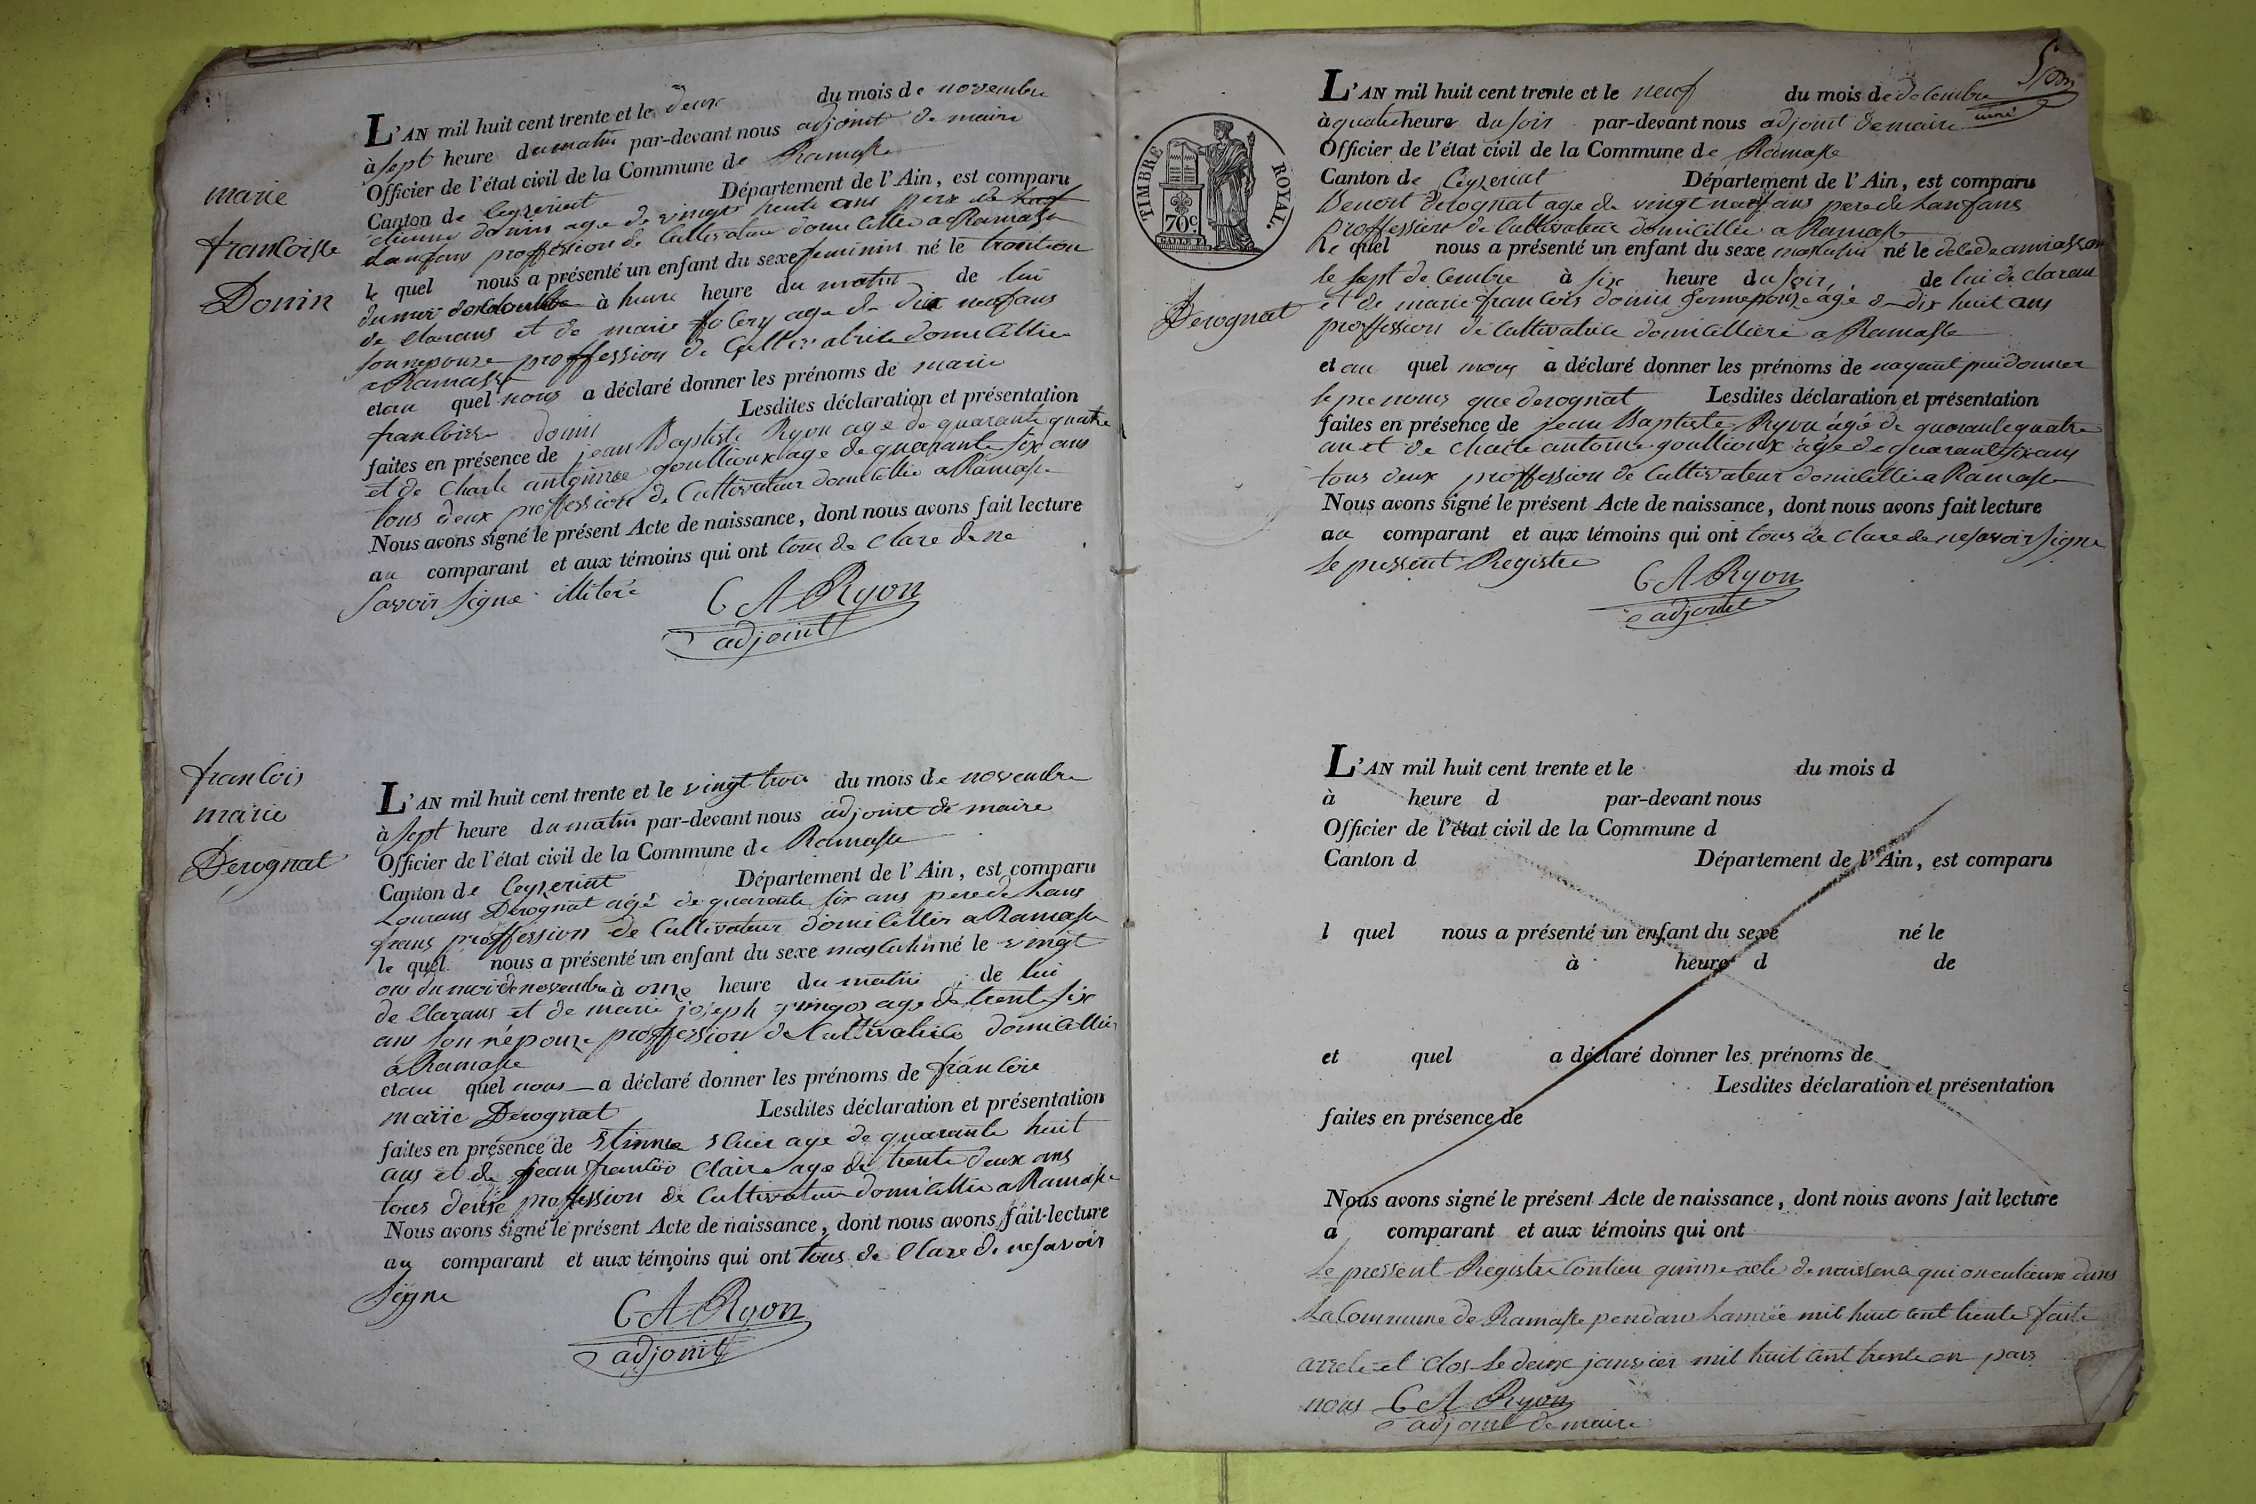 marie
francoisse
Donin
L'AN mil huit cent trente et le deux du mois de novembre
à sept heure du matin par-devant nous adjoint de maire
Officier de l'état civil de la Commune de Ramasse
Canton de Ceyzeriat Département de l'Ain, est comparu
etienne donin age de vingt trente ans pere de
Lanfans proffession de Cultivateur domicillie a Ramasse
le quel nous a présenté un enfant du sexe feminin né le trantion
du moi à heure du matin de lui
de clarans et de marie age de dix neuf ans
sonnepouze proffession de Cultivatrice domicillie
a Ramasse
et au quel nous a déclaré donner les prénoms de marie
francoisse donin Lesdites déclaration et présentation
faites en présence de jean Baptiste Ryon age de quarante quatre
et de Charle antoinne goullioux age de quarante six ans
tous deux proffession de Cultivateur domicillie a Ramasse
Nous avons signé le présent Acte de naissance, dont nous avons fait lecture
au comparant et aux témoins qui ont tous de clare de ne
savoir signe illitere
C A Ryon
adjoint
francois
marie
Derognat
L'AN mil huit cent trente et le vingt trois du mois de novembre
à sept heure du matin par-devant nous adjoint de maire
Officier de l'état civil de la Commune de Ramasse
Canton de Ceyzeriat Département de l'Ain, est comparu
Lourans Derognat agé de quarante six ans pere de Lans
frans proffession de Cultivateur domicillier a Ramasse
le quel nous a présenté un enfant du sexe masculin né le vingt
du moi de novembre à onze heure du matin de lui
de clarans et de marie joseph age de trente six
ans sonnépouze proffession de Cultivatrice domicillié
a Ramasse
et au quel nous a déclaré donner les prénoms de francois
marie Derognat Lesdites déclaration et présentation
faites en présence de Etienne age de quarante huit
ans et de jean francois Claire age de trente deux ans
tous deuse proffession de Cultivateur domicillie a Ramasse
Nous avons signé le présent Acte de naissance, dont nous avons fait lecture
au comparant et aux témoins qui ont tous de clare de ne savoir
signe
C A Ryon
adjoint
TIMBRE ROYAL
70c.
Derognat
L'AN mil huit cent trente et le neuf du mois de decembre
à quatre heure du soir par-devant nous adjoint de maire
Officier de l'état civil de la Commune de Ramasse
Canton de Ceyzeriat Département de l'Ain, est comparu
Benoit derognat age de vingt neuf ans pere de Lanfans
proffession de Cultivateur domicillie a Ramasse
le quel nous a présenté un enfant du sexe masculin né le
le sept decembre à six heure du soir, de lui de clarans
et de marie francois donin sonnepouze age de dix huit ans
proffession de Cultivatrice domicilliere a Ramasse
et au quel nous a déclaré donner les prénoms de nayant pui donner
le prenoms que derognat Lesdites déclaration et présentation
faites en présence de jean Baptiste Ryon agé de quarante quatre
an et de Charle antoine goullioux age de quarante six ans
tous deux proffession de Cultivateur domicillie a Ramasse
Nous avons signé le présent Acte de naissance, dont nous avons fait lecture
au comparant et aux témoins qui ont tous de clare de ne savoir signe
le pressent Registre
C A Ryon
adjoint
L'AN mil huit cent trente et le du mois d
à heure d par-devant nous
Officier de l'état civil de la Commune d
Canton d Département de l'Ain, est comparu
l quel nous a présenté un enfant du sexe né le
à heure d de
et quel a déclaré donner les prénoms de
Lesdites déclaration et présentation
faites en présence de
Nous avons signé le présent Acte de naissance, dont nous avons fait lecture
a comparant et aux témoins qui ont
Le pressent Registre Contien quinne acte de naissance qui dans
La Commune de Ramasse pendans Lannée mil huit cent trente faite
arrete et clos le deux janvier mil huit cent trente on par
nous C A Ryon
adjoint de maire